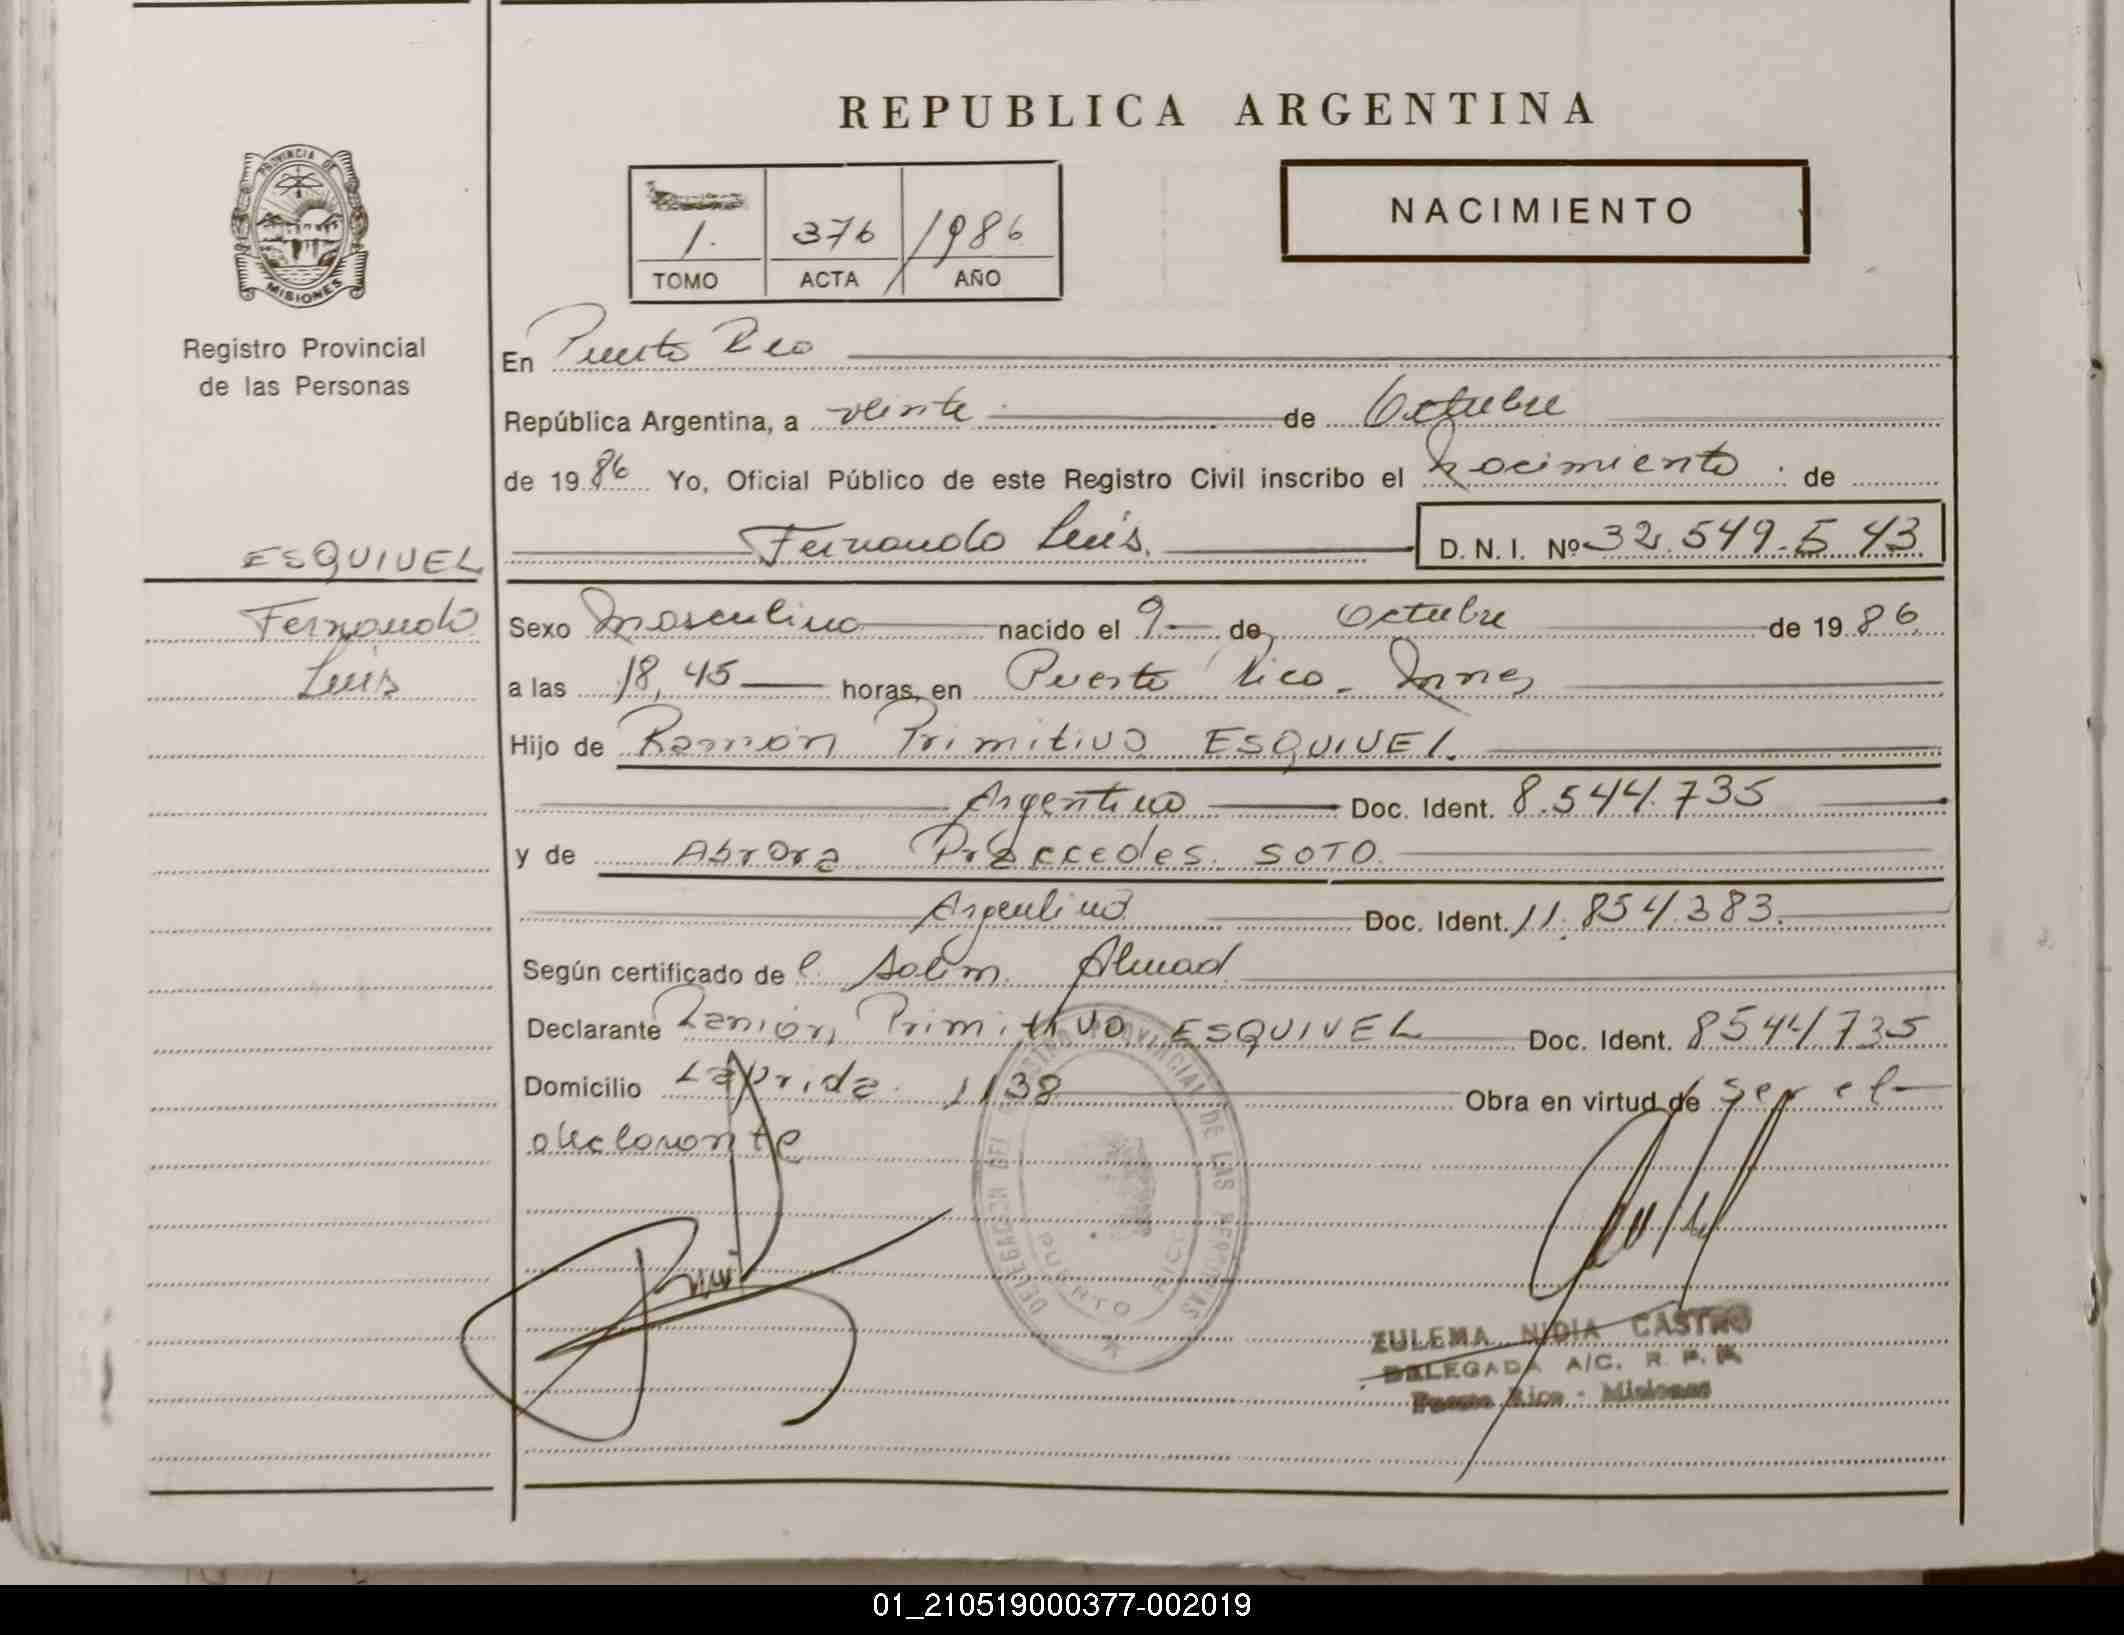 REPUBLICA ARGENTINA
PROVINCIA DE
MISIONES
Registro Provincial
de las Personas
1. 376 1986
TOMO ACTA AÑO
NACIMIENTO
En Puerto Rico
República Argentina, a veinte de Octubre
de 1986 Yo, Oficial Público de este Registro Civil inscribo el nacimiento de
ESQUIVEL
Fernando Luis. D. N. I. Nº 32.549.543
Fernando
Luis
Sexo Masculino nacido el 9 de Octubre de 1986
a las 18,45 horas, en Puerto Rico - Mnes
Hijo de Ramón Primitivo ESQUIVEL.
Argentino Doc. Ident. 8.544.735
y de SOTO.
Argentina Doc. Ident. 11.854.383.
Según certificado de
Declarante Ramón Primitivo ESQUIVEL Doc. Ident. 8544735
Domicilio Laprida 1138 Obra en virtud de ser el
declarante
DELEGACION DEL REGISTRO PROVINCIAL DE LAS PERSONAS
PUERTO RICO
ZULEMA NIDIA CASTRO
DELEGADA A/C. R. P. P.
Puerto Rico - Misiones
01_210519000377-002019